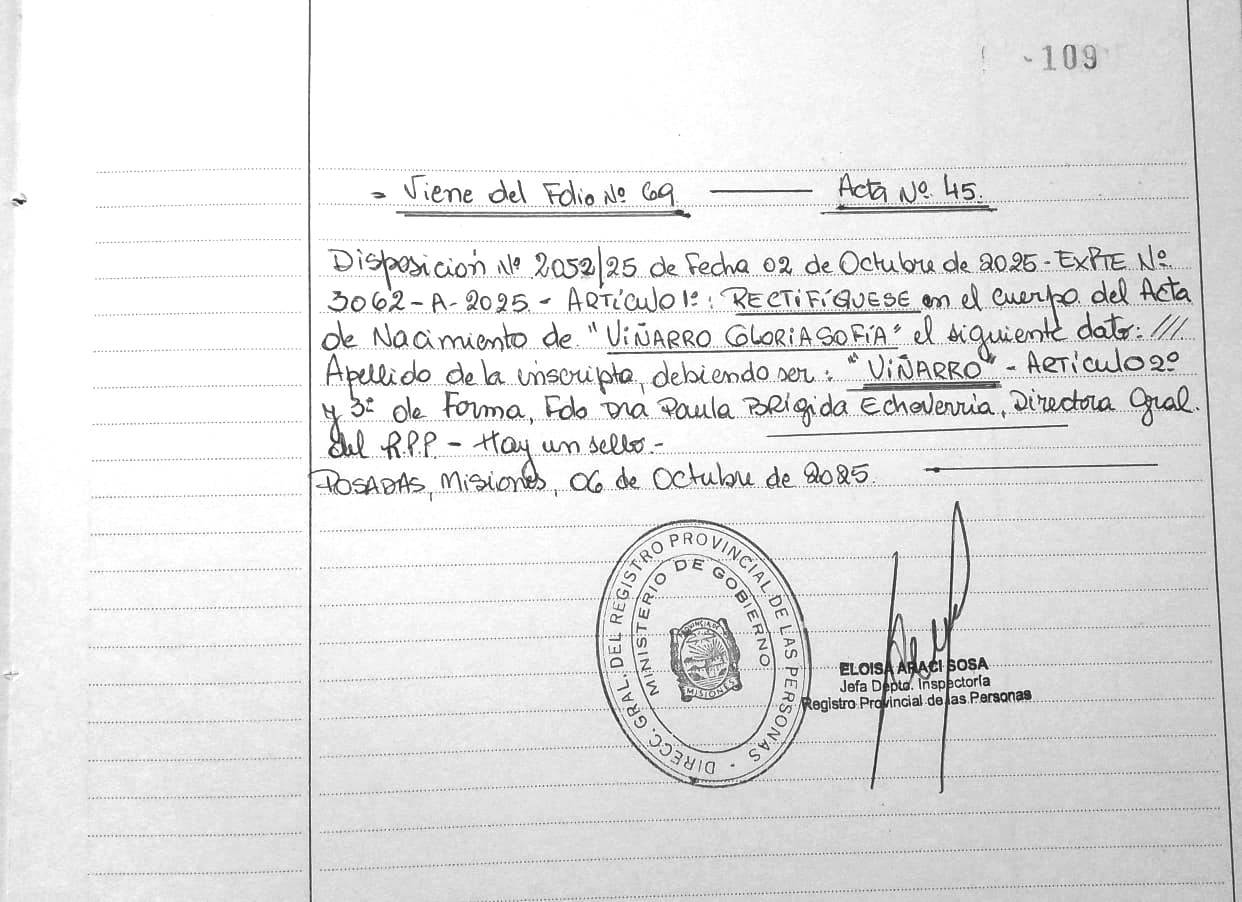 -109
= Viene del Folio Nº 69. ——— Acta Nº 45.
Disposición Nº 2052/25 de Fecha 02 de Octubre de 2025 - EXPTE Nº
3062-A-2025 - ARTÍCULO 1º: RECTIFÍQUESE en el cuerpo del Acta
de Nacimiento de "VIÑARRO GLORIA SOFÍA" el siguiente dato: ///
Apellido de la inscripta, debiendo ser: "VIÑARRO" - ARTÍCULO 2º
y 3º de Forma, Fdo Dra Paula BRÍgida Echeverria, Directora Gral.
del R.P.P. - Hay un sello. -
POSADAS, Misiones, 06 de Octubre de 2025.
DIRECC. GRAL. DEL REGISTRO PROVINCIAL DE LAS PERSONAS
MINISTERIO DE GOBIERNO
PROVINCIA DE
MISIONES
ELOISA ARACI SOSA
Jefa Depto. Inspectoría
Registro Provincial de las Personas